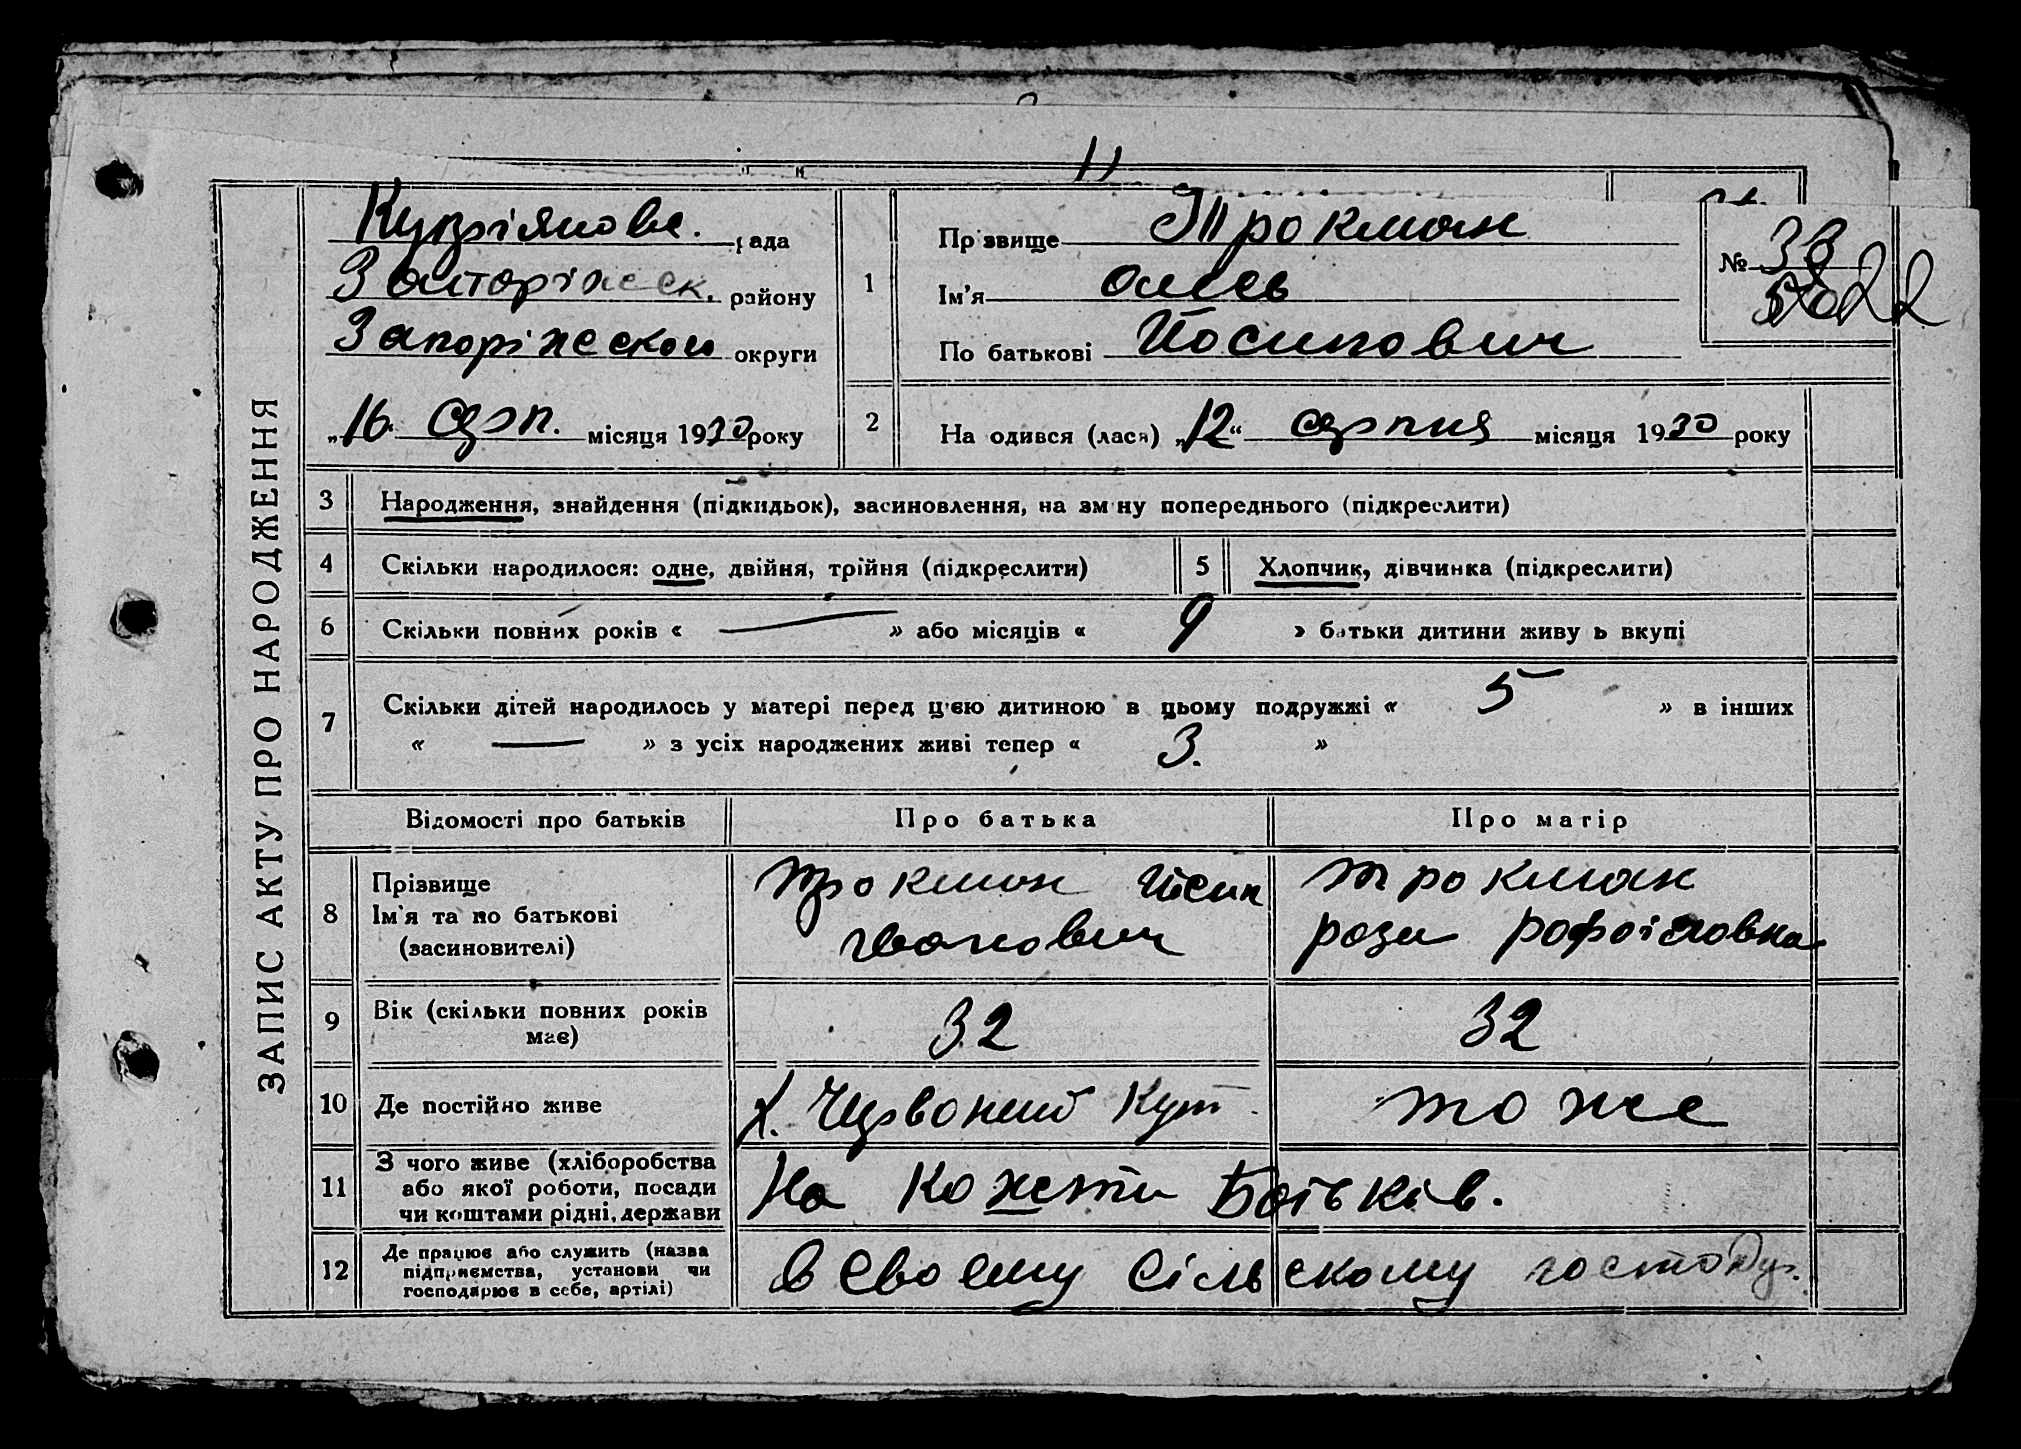 11
Купріянове. рада
Запоріжськ. району
Запоріжського округи
„16“ серп. місяця 1930 року
1
Прізвище Трокман
Ім’я Олесь
По батькові Йосипович
№ 38
2
На одився (лася) „12“ серпня місяця 1930 року
ЗАПИС АКТУ ПРО НАРОДЖЕННЯ
3 Народження, знайдення (підкидьок), засиновлення, на зм ну попереднього (підкреслити)
4 Скільки народилося: одне, двійня, трійня (підкреслити)
5 Хлопчик, дівчинка (підкреслити)
6 Скільки повних років « — » або місяців « 9 » батьки дитини живу ь вкупі
7 Скільки дітей народилось у матері перед ц’єю дитиною в цьому подружжі « 5 » в інших
« — » з усіх народжених живі тепер « 3. »
Відомості про батьків Про батька Про матір
8 Прізвище
Ім’я та по батькові
(засиновителі)
Трокман Йосип
Іванович
Трокман
рози
9 Вік (скільки повних років
має)
32
32
10 Де постійно живе
х. Червоний Кут.
тоже
11 З чого живе (хліборобства
або якої роботи, посади
чи коштами рідні, держави
На кошти Батьків.
12 Де працює або служить (назва
підприємства, установи чи
господарює в себе, артілі)
в своему сільскому